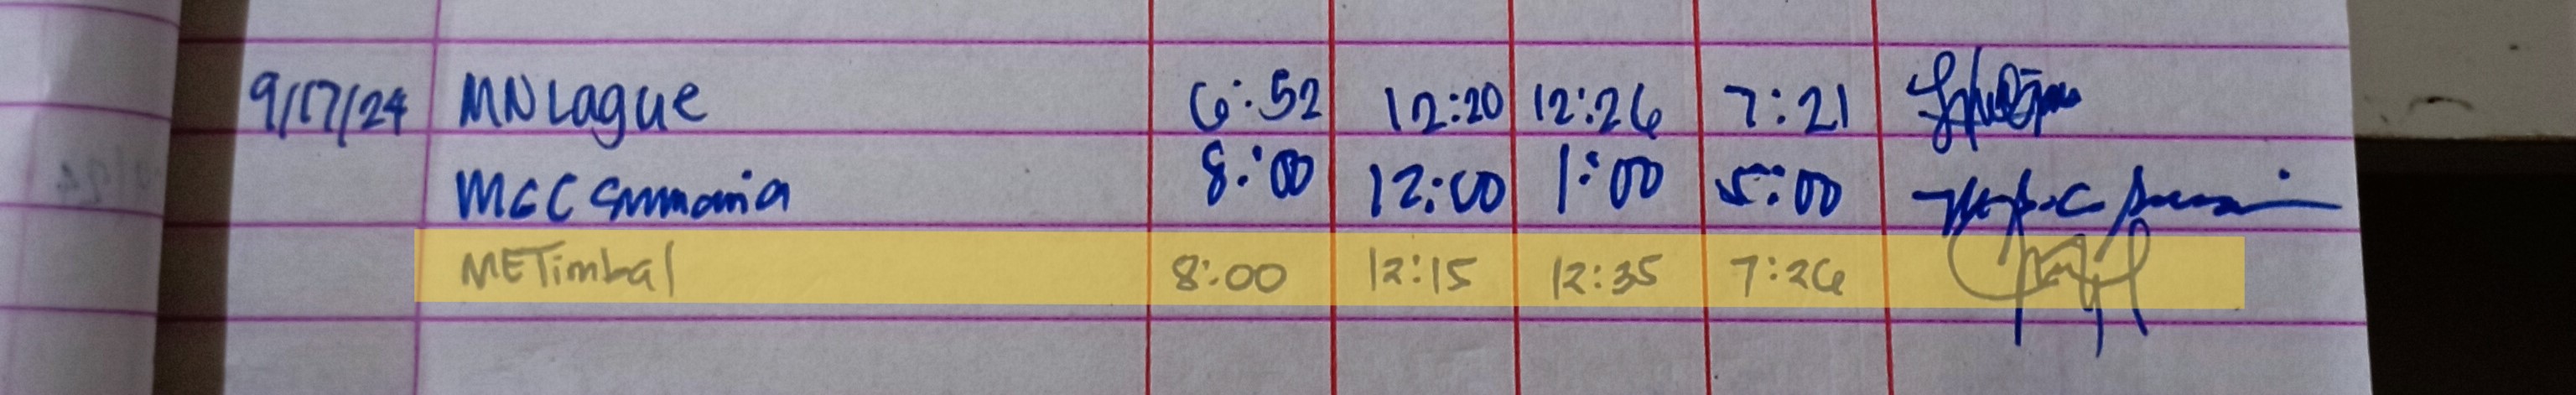 9/17/24 MN Lague 6:52 12:20 12:26 7:21
8:00 12:00 1:00 5:00
METimbal 8:00 12:15 12:35 7:26